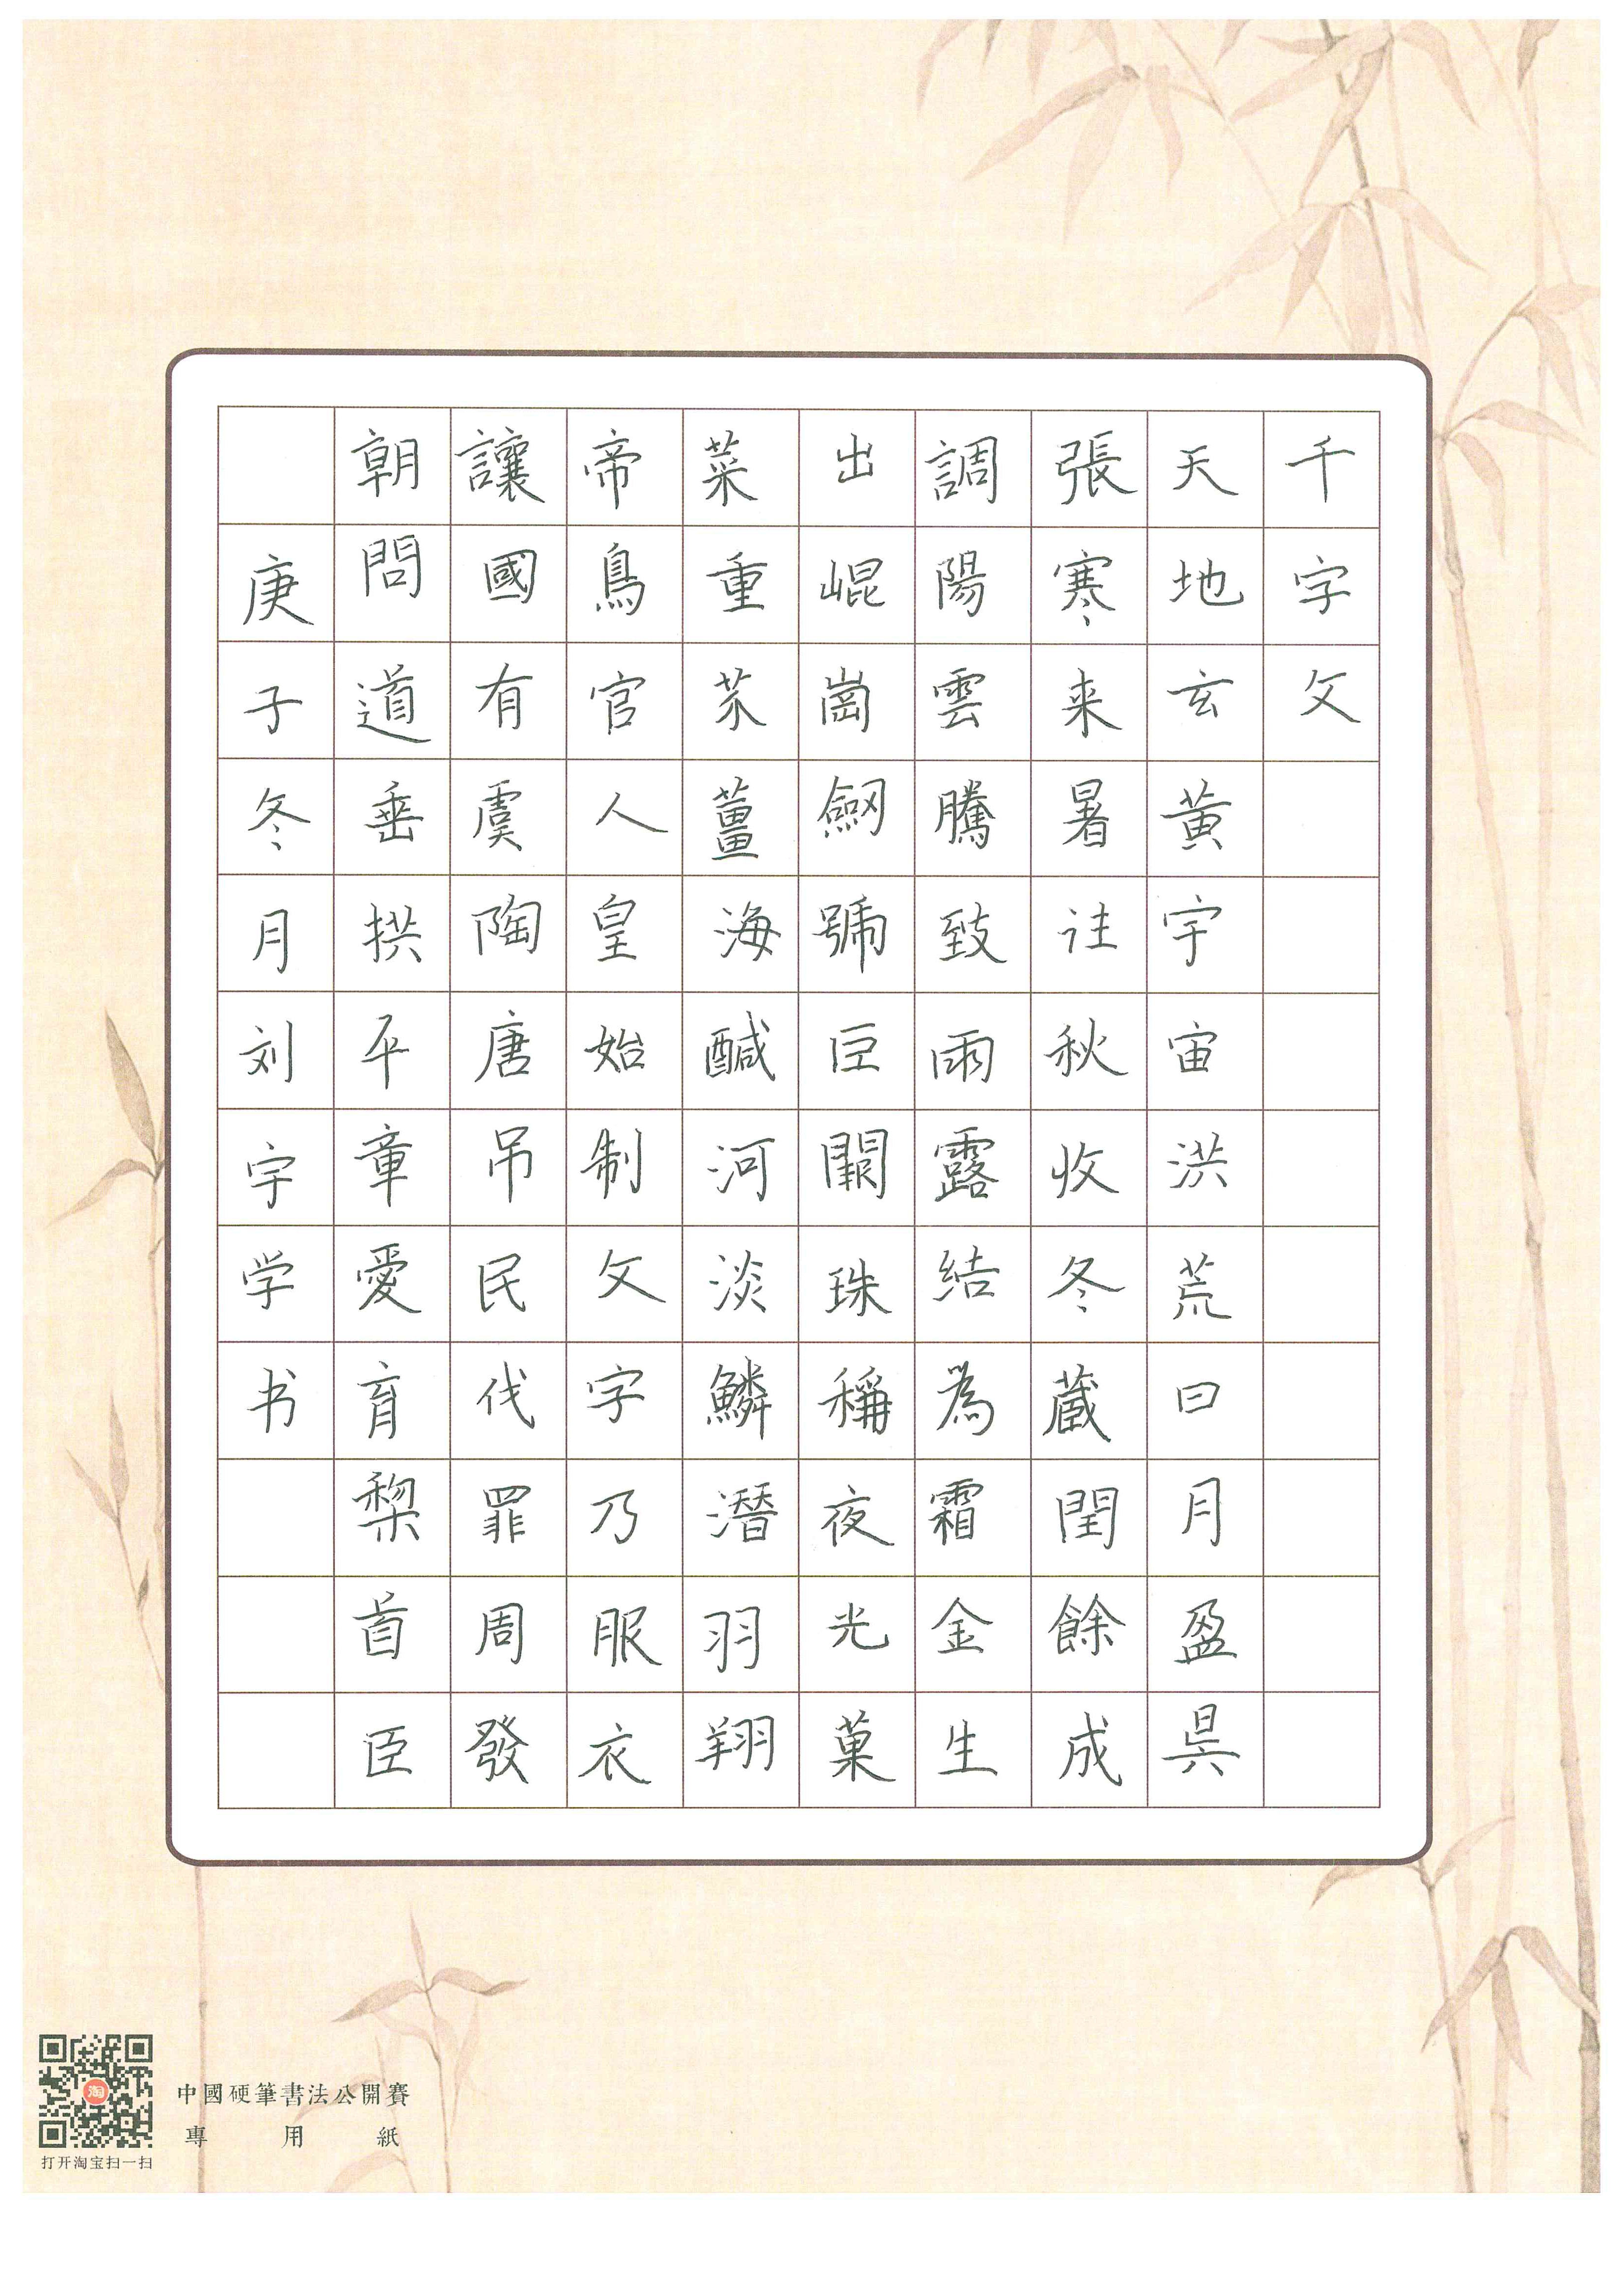 千字文
天地玄黃宇宙洪荒曰月盈昃
張寒来暑往秋收冬蔵閏餘成
調陽雲騰致雨露結為霜金生
出崐崗劒號巨闕珠稱夜光菓
菜重芥薑海醎河淡鱗潛羽翔
帝鳥官人皇始制文字乃服衣
讓國有虞陶唐吊民伐罪周發
朝問道垂拱平章愛育黎首臣
庚子冬月刘宇学书
中國硬筆書法公開賽
專用紙
淘
打开淘宝扫一扫